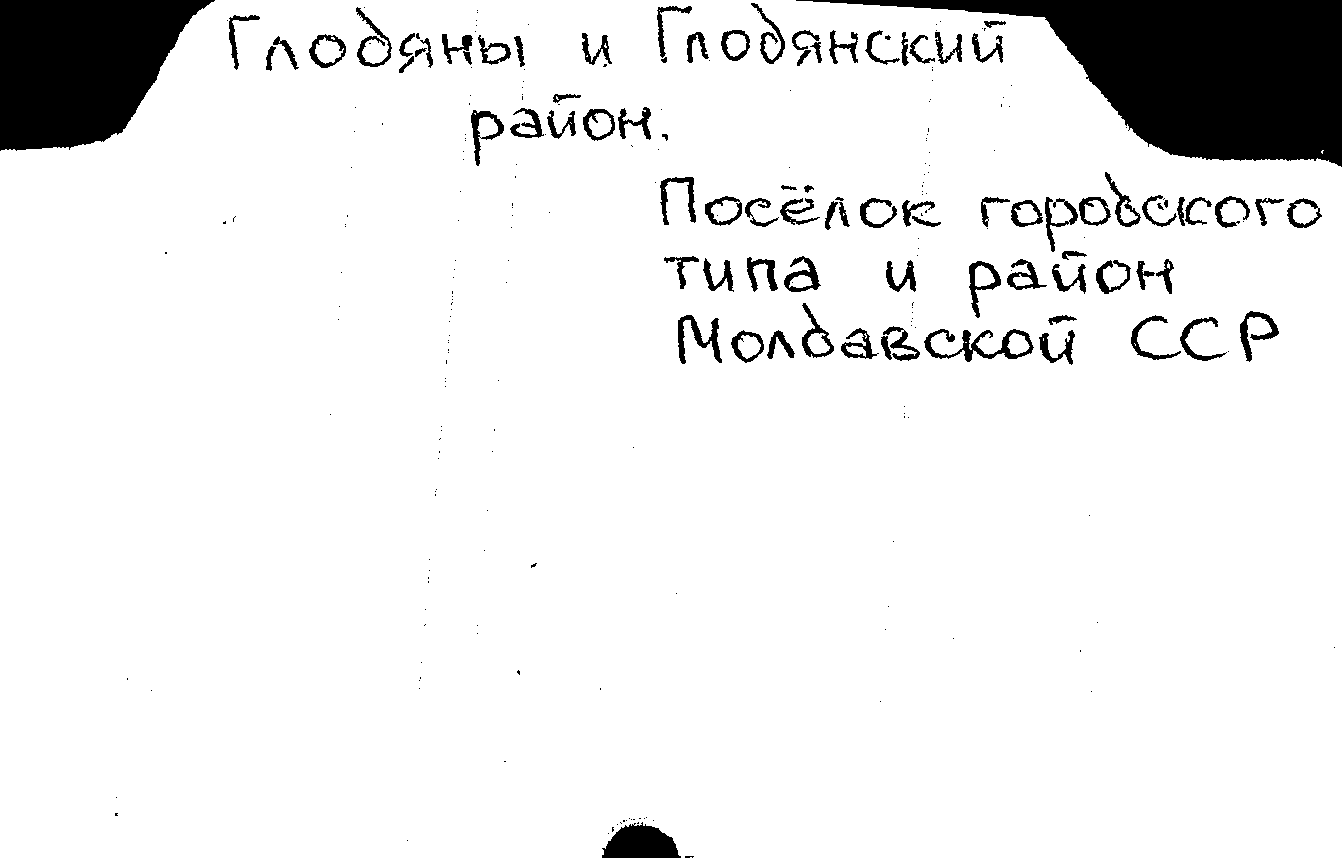 Глодяны и Глодянский
район.
Посёлок городского
типа и район
Молдавской ССР